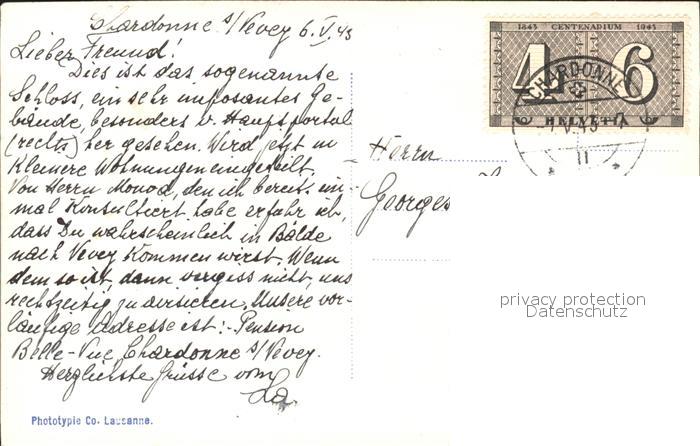 Chardonne s/Vevey 6.V.43
Lieber Freund!
Dies ist das sogenannte
Schloss, ein sehr imposantes Ge-
bäude, besonders v. Hauptportal
(rechts) her gesehen. Wird jetzt in
kleinere Wohnungen eingeteilt.
Von Herrn Monod, den ich bereits ein-
mal konsultiert habe erfuhr ich,
dass Du wahrscheinlich in Bälde
nach Vevey kommen wirst. Wenn
dem so ist, dann vergiss nicht, uns
rechtzeitig zu avisieren. Unsere vor-
läufige Adresse ist: Pension
Belle-Vue, Chardonne s/Vevey.
Herzlichste Grüsse vom
Phototypie Co. Lausanne.
1843 CENTENARIUM 1943
4 6
HELVETIA
CHARDONNE
Herrn
Georges
privacy protection
Datenschutz